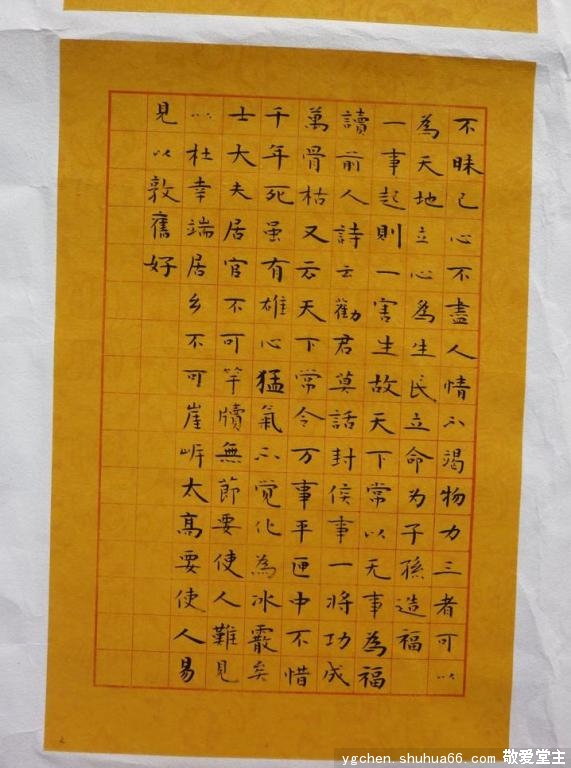 不昧己心不盡人情不竭物力三者可以
為天地立心為生民立命为子孫造福
一事起則一害生故天下常以无事為福
讀前人詩云勸君莫話封侯事一將功成
萬骨枯又云天下常令万事平匣中不惜
千年死虽有雄心猛氣不觉化為冰霰矣
士大夫居官不可竿牘無節要使人難見
以杜幸端居乡不可崖岸太高要使人易
見以敦舊好
ygchen.shuhua66.com 敬爱堂主